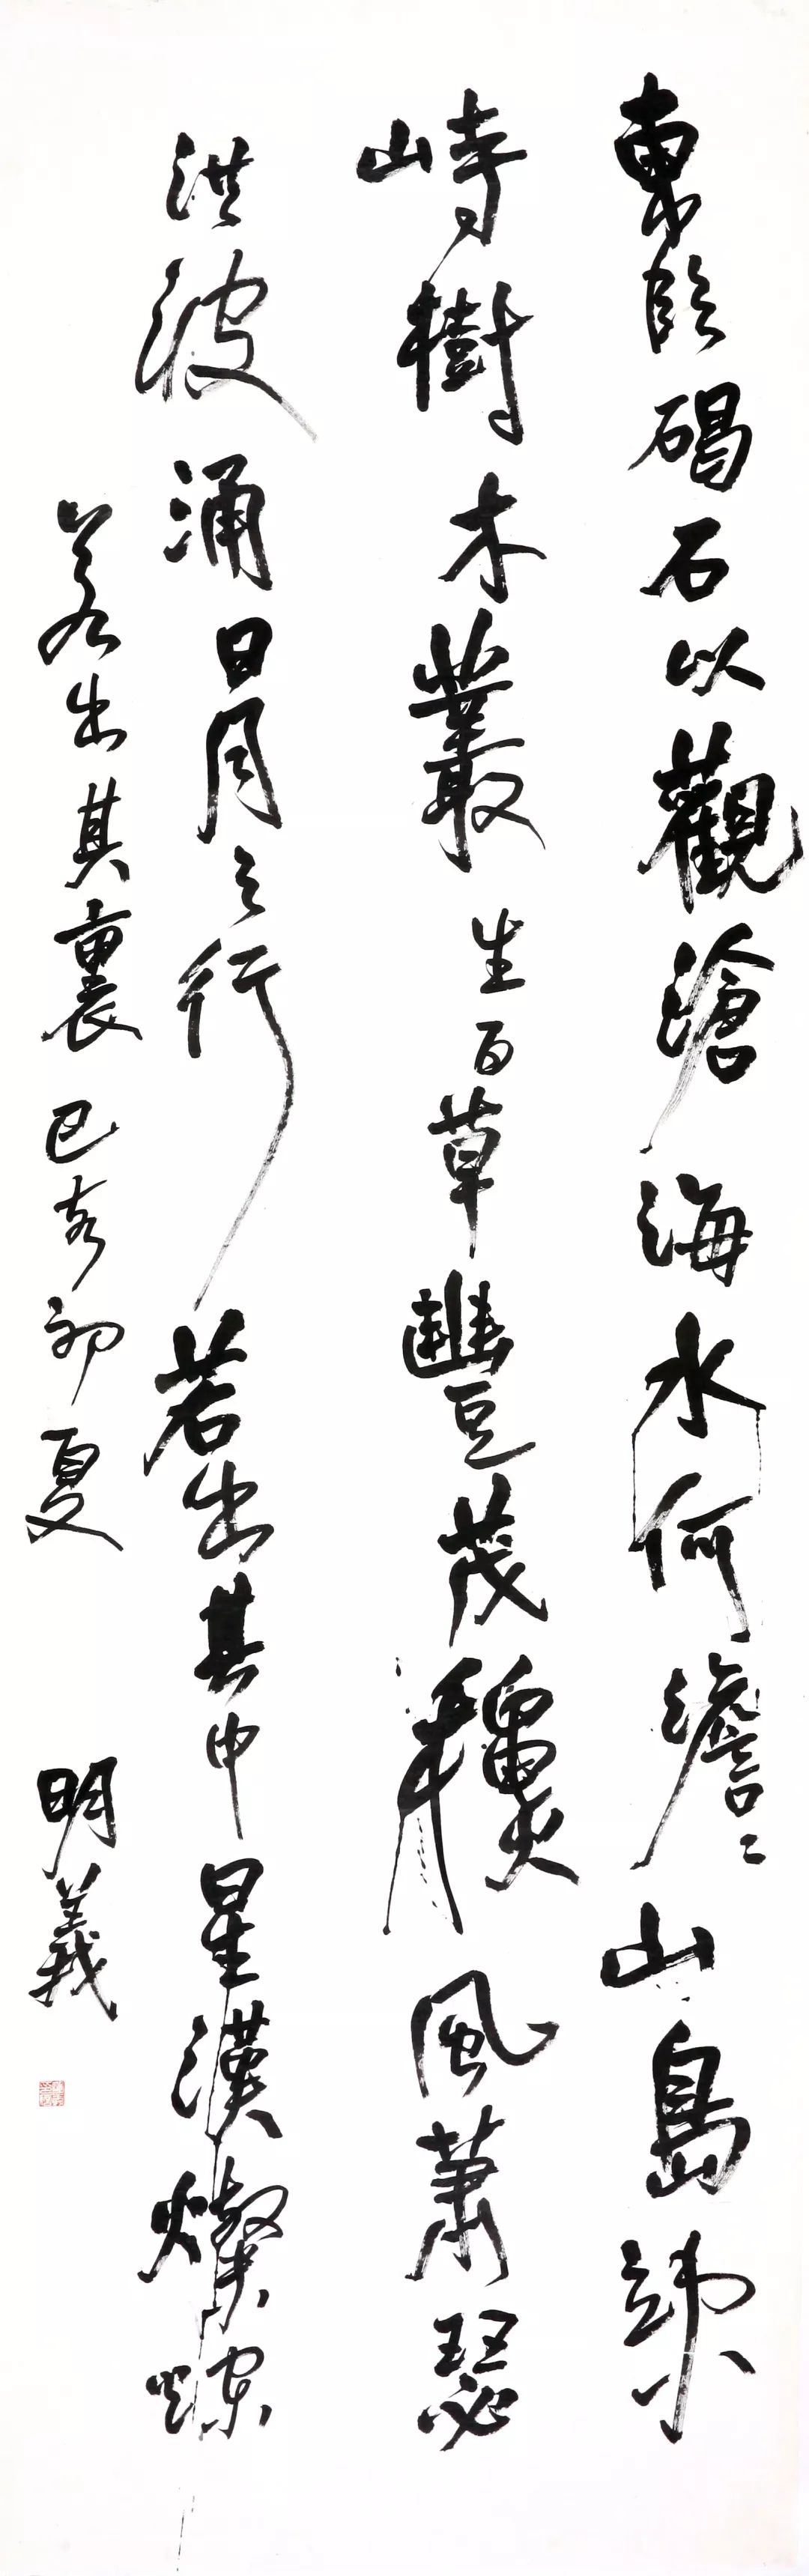 東臨碣石以觀滄海水何澹〻山島竦
峙樹木叢生百草豐茂龝風蕭瑟
洪波涌日月之行若出其中星漢燦爛
若出其裏 己亥初夏 明義